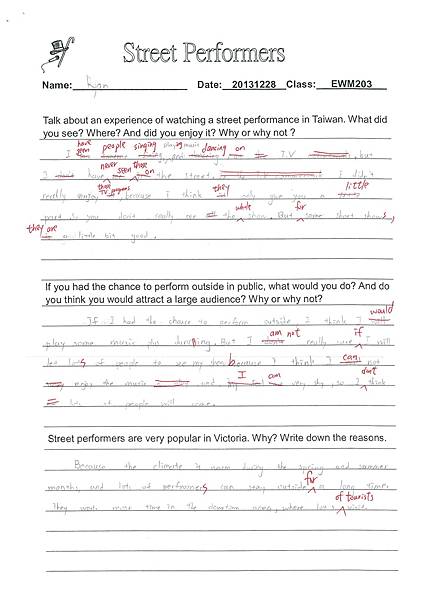 Street Performers
Name: Ryan Date: 20131228 Class: EWM203
Talk about an experience of watching a street performance in Taiwan. What did
you see? Where? And did you enjoy it? Why or why not ?
have seen people singing playing music dancing on
I and T.V but
never seen those on
I have the street, I didn't
those TV programs they little
really enjoy because I think only give you a
whole for
part so you don't really see the show. But some short shows,
they are
a little bit good.
If you had the chance to perform outside in public, what would you do? And do
you think you would attract a large audience? Why or why not?
would
If I had the chance to perform outside I think I will
am not if
play some music plus dancing. But I really sure I will
can
lots of people to see my show because I think I not
I am don't
enjoy the music and very shy, so I think
lots of people will come.
Street performers are very popular in Victoria. Why? Write down the reasons.
Because the climate is warm during the spring and summer
for
months and lots of performers can stay outside a long time.
of tourists
They work more time in the downtown area, where lots visit.